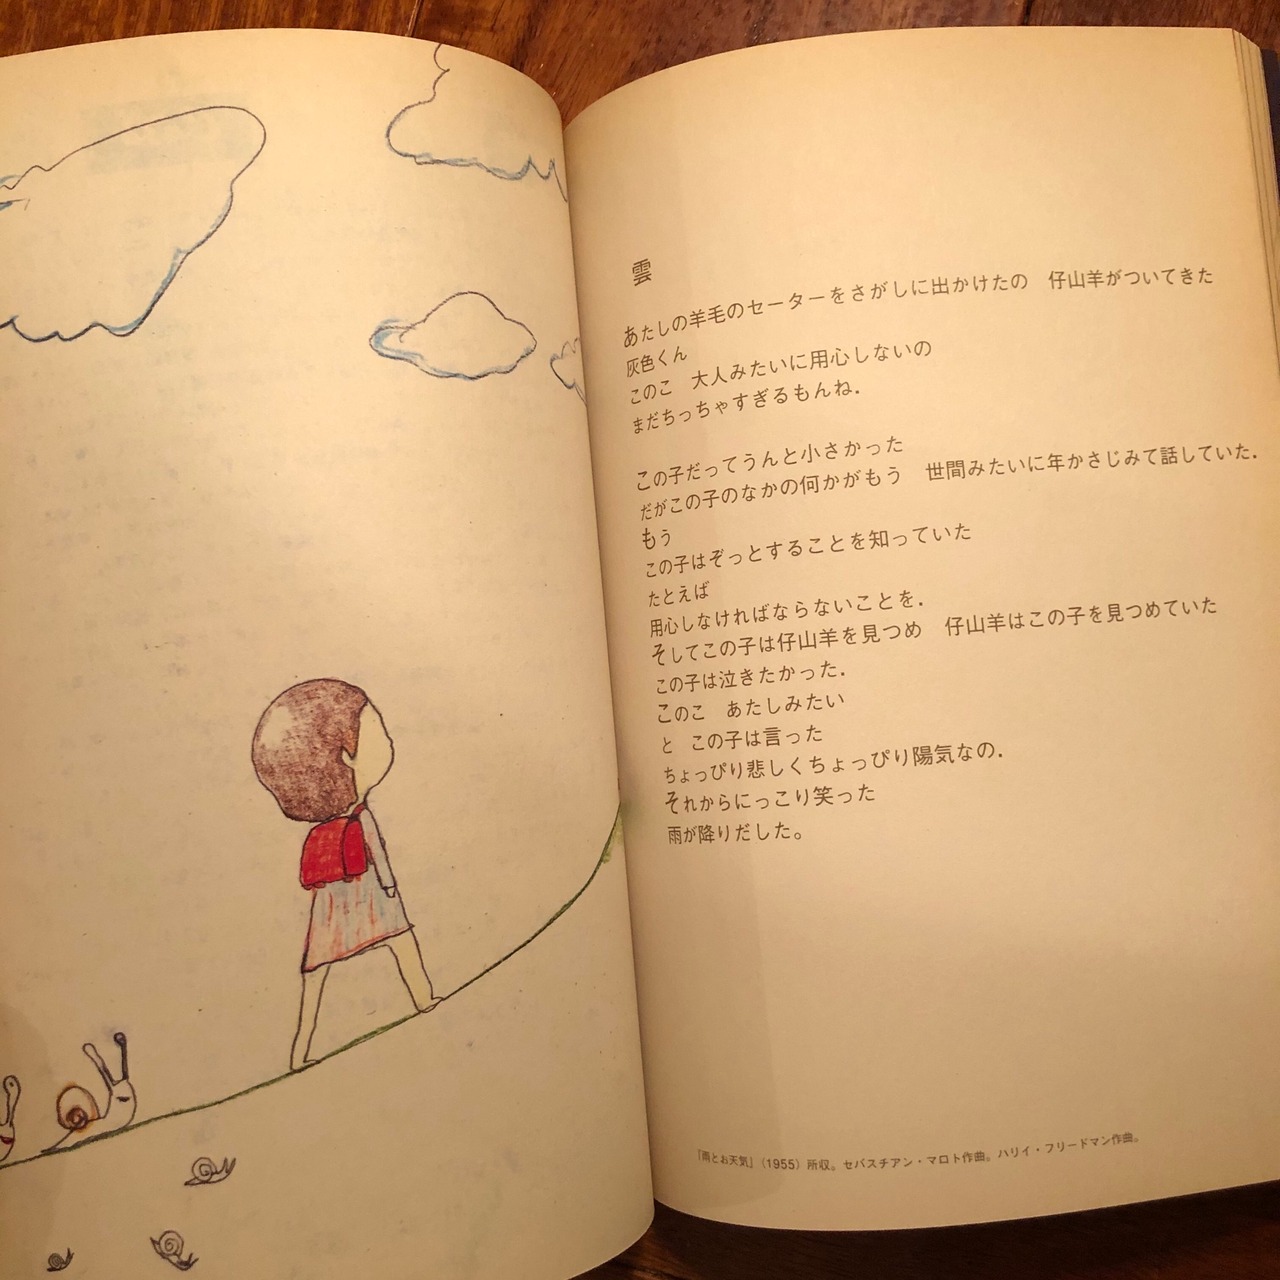 雲
あたしの羊毛のセーターをさがしに出かけたの　仔山羊がついてきた
灰色くん
このこ　大人みたいに用心しないの
まだちっちゃすぎるもんね．
この子だってうんと小さかった
だがこの子のなかの何かがもう　世間みたいに年かさじみて話していた．
もう
この子はぞっとすることを知っていた
たとえば
用心しなければならないことを．
そしてこの子は仔山羊を見つめ　仔山羊はこの子を見つめていた
この子は泣きたかった．
このこ　あたしみたい
と　この子は言った
ちょっぴり悲しくちょっぴり陽気なの．
それからにっこり笑った
雨が降りだした。
『雨とお天気』（1955）所収。セバスチアン・マロト作曲。ハリイ・フリードマン作曲。